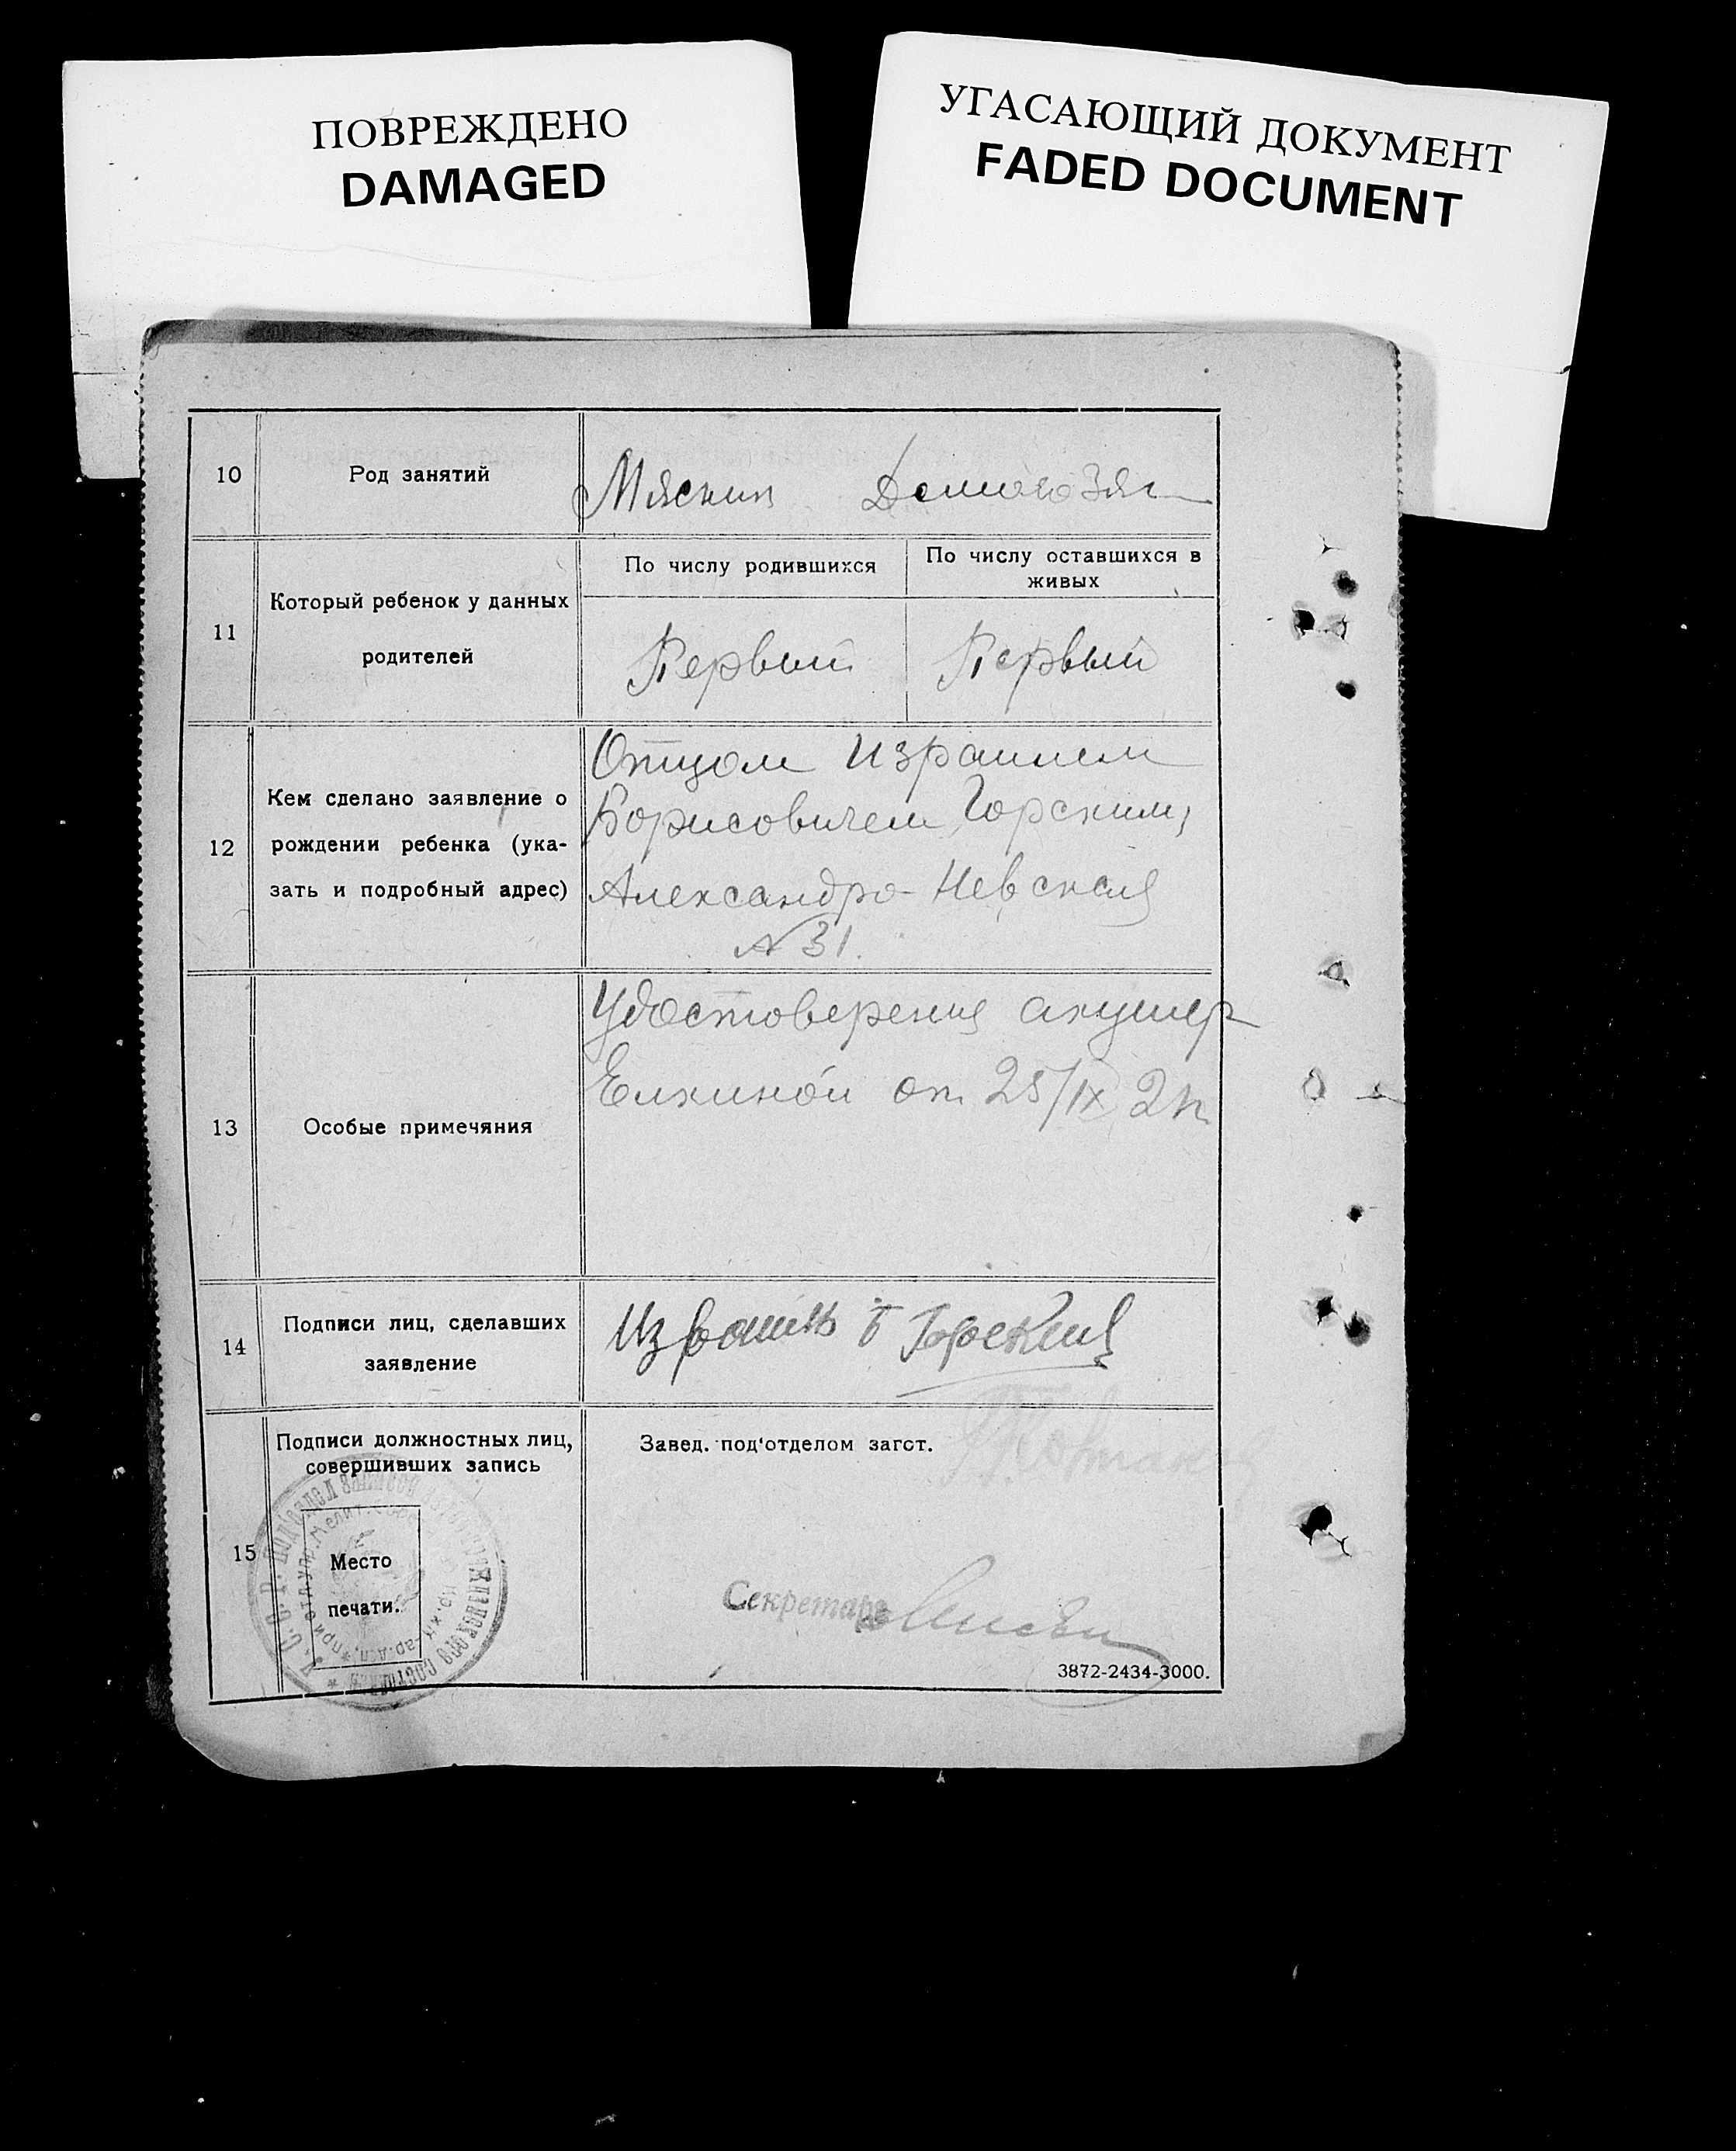 ПОВРЕЖДЕНО
DAMAGED
УГАСАЮЩИЙ ДОКУМЕНТ
FADED DOCUMENT
10 Род занятий Мясник Домохоз
11 Который ребенок у данных родителей
По числу родившихся
По числу оставшихся в живых
Первый Первый
12 Кем сделано заявление о
рождении ребенка (ука-
зать и подробный адрес)
Отцом Израилем
Борисовичем Горским,
Александро-Невская
№ 31.
13 Особые примечяния
Удостоверения акушер
Елкиной от 25/IX
14 Подписи лиц, сделавших
заявление
Израиль Б Горский
15 Подписи должностных лиц,
совершивших запись
Место
печати.
Завед. под'отделом загст.
Секретарь
3872-2434-3000.